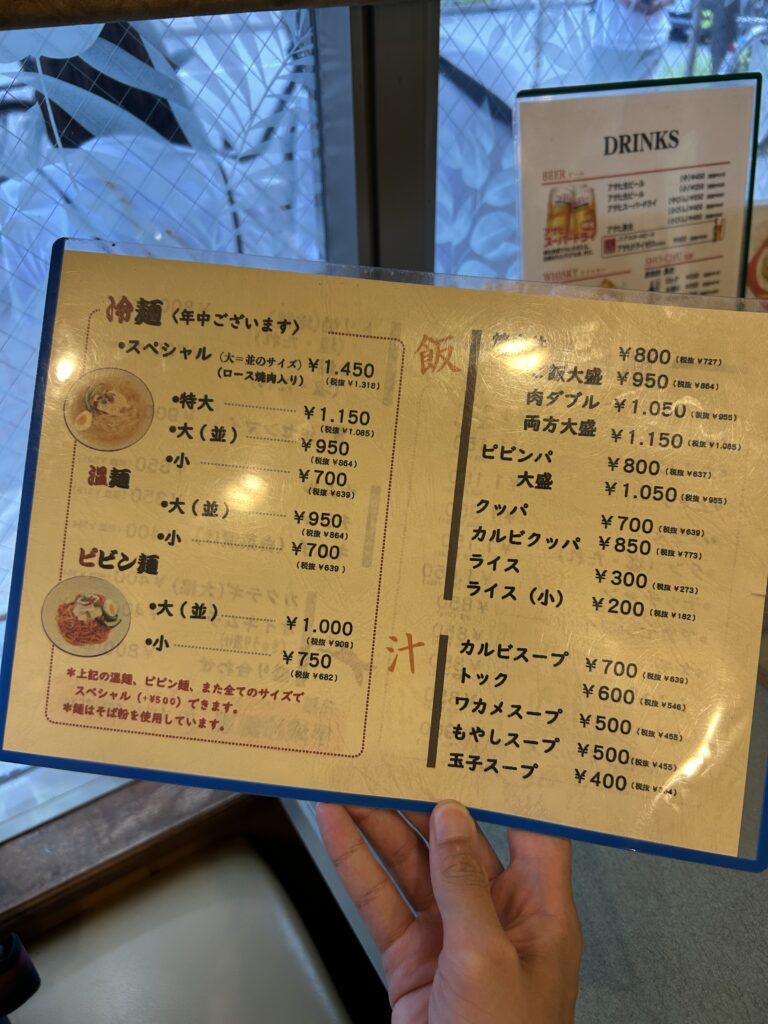 冷麺〈年中ございます〉
•スペシャル（大＝並のサイズ）￥1.450
（ロース焼肉入り）（税抜 ￥1.318）
•特大 ￥1.150
（税抜 ￥1.085）
•大（並）￥950
（税抜 ￥864）
•小 ￥700
（税抜 ￥639）
温麺
•大（並）￥950
（税抜 ￥864）
•小 ￥700
（税抜 ￥639）
ピビン麺
•大（並）￥1.000
（税抜 ￥909）
•小 ￥750
（税抜 ￥682）
＊上記の温麺、ピビン麺、また全てのサイズで
スペシャル（+￥500）できます。
＊麺はそば粉を使用しています。
飯
￥800（税抜 ￥727）
飯大盛 ￥950（税抜 ￥864）
肉ダブル ￥1.050（税抜 ￥955）
両方大盛 ￥1.150（税抜 ￥1.085）
ピビンパ ￥800（税抜 ￥637）
大盛 ￥1.050（税抜 ￥955）
クッパ ￥700（税抜 ￥639）
カルビクッパ ￥850（税抜 ￥773）
ライス ￥300（税抜 ￥273）
ライス（小）￥200（税抜 ￥182）
汁
カルビスープ ￥700（税抜 ￥639）
トック ￥600（税抜 ￥546）
ワカメスープ ￥500（税抜 ￥455）
もやしスープ ￥500（税抜 ￥455）
玉子スープ ￥400
DRINKS
BEER ビール
アサヒ生ビール
アサヒ生ビール
アサヒスーパードライ
WHISKY